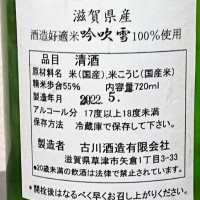 滋賀県産
酒造好適米 吟吹雪100%使用
品目 清酒
原材料名 米(国産)、米こうじ(国産米)
精米歩合55% 内容量720ml
製造年月 2022.5.
アルコール分 17度以上18度未満
保存方法 冷蔵庫で保存して下さい。
製造者 古川酒造有限会社
滋賀県草津市矢倉1丁目3-33
●20歳未満の飲酒は法律で禁止されています。
*開栓後はなるべく早くお召し上がりください。